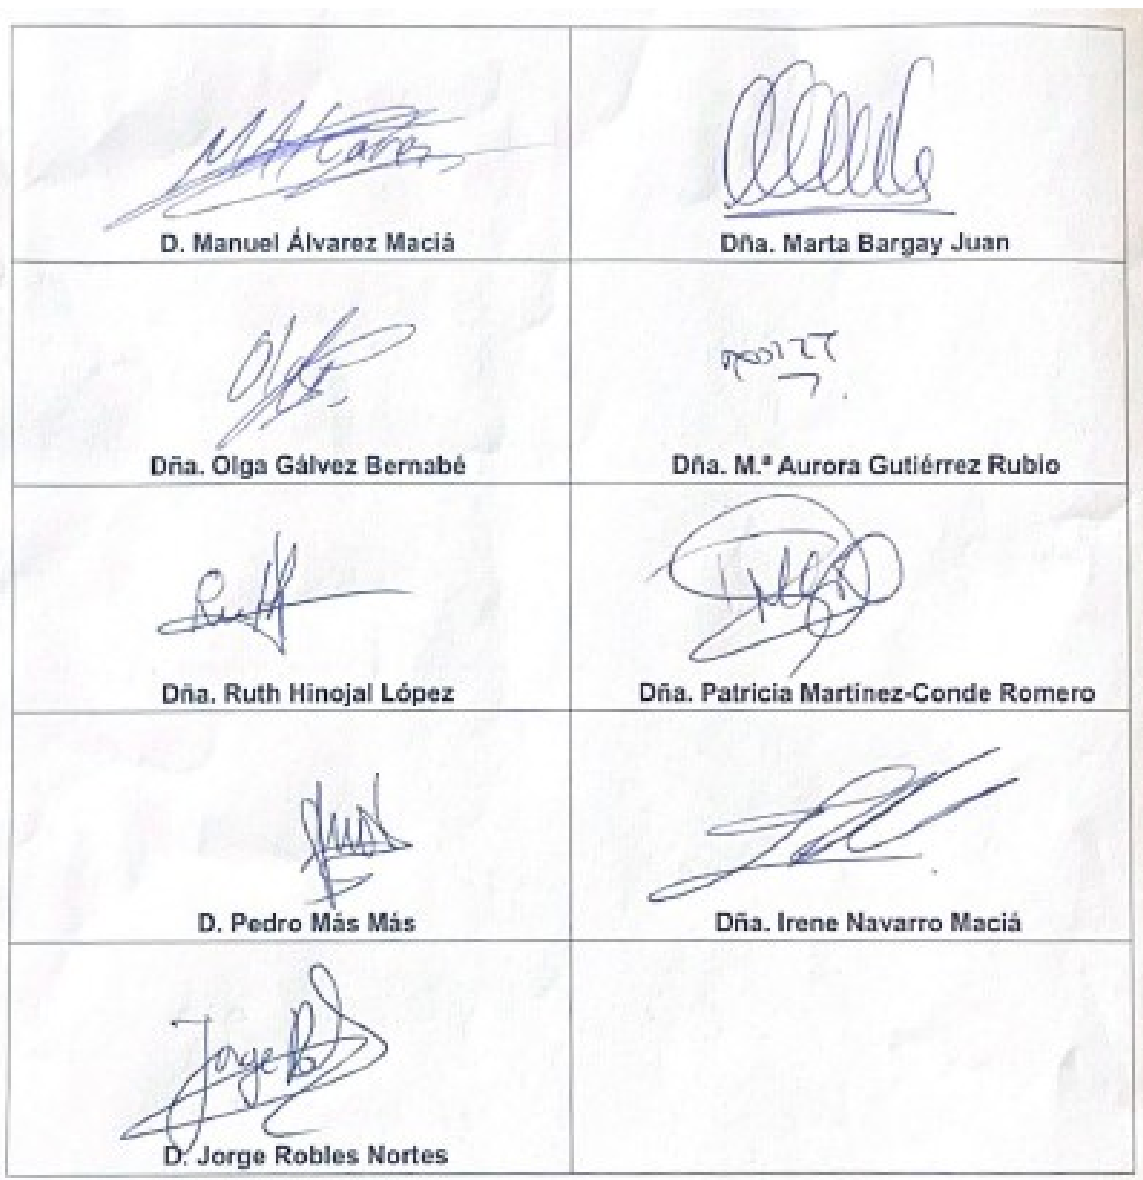 D. Manuel Álvarez Maciá
Dña. Marta Bargay Juan
Olga
Dña. Olga Gálvez Bernabé
Dña. M.ª Aurora Gutiérrez Rubio
Ruth
Dña. Ruth Hinojal López
Dña. Patricia Martínez-Conde Romero
D. Pedro Más Más
Dña. Irene Navarro Maciá
Jorge
D. Jorge Robles Nortes